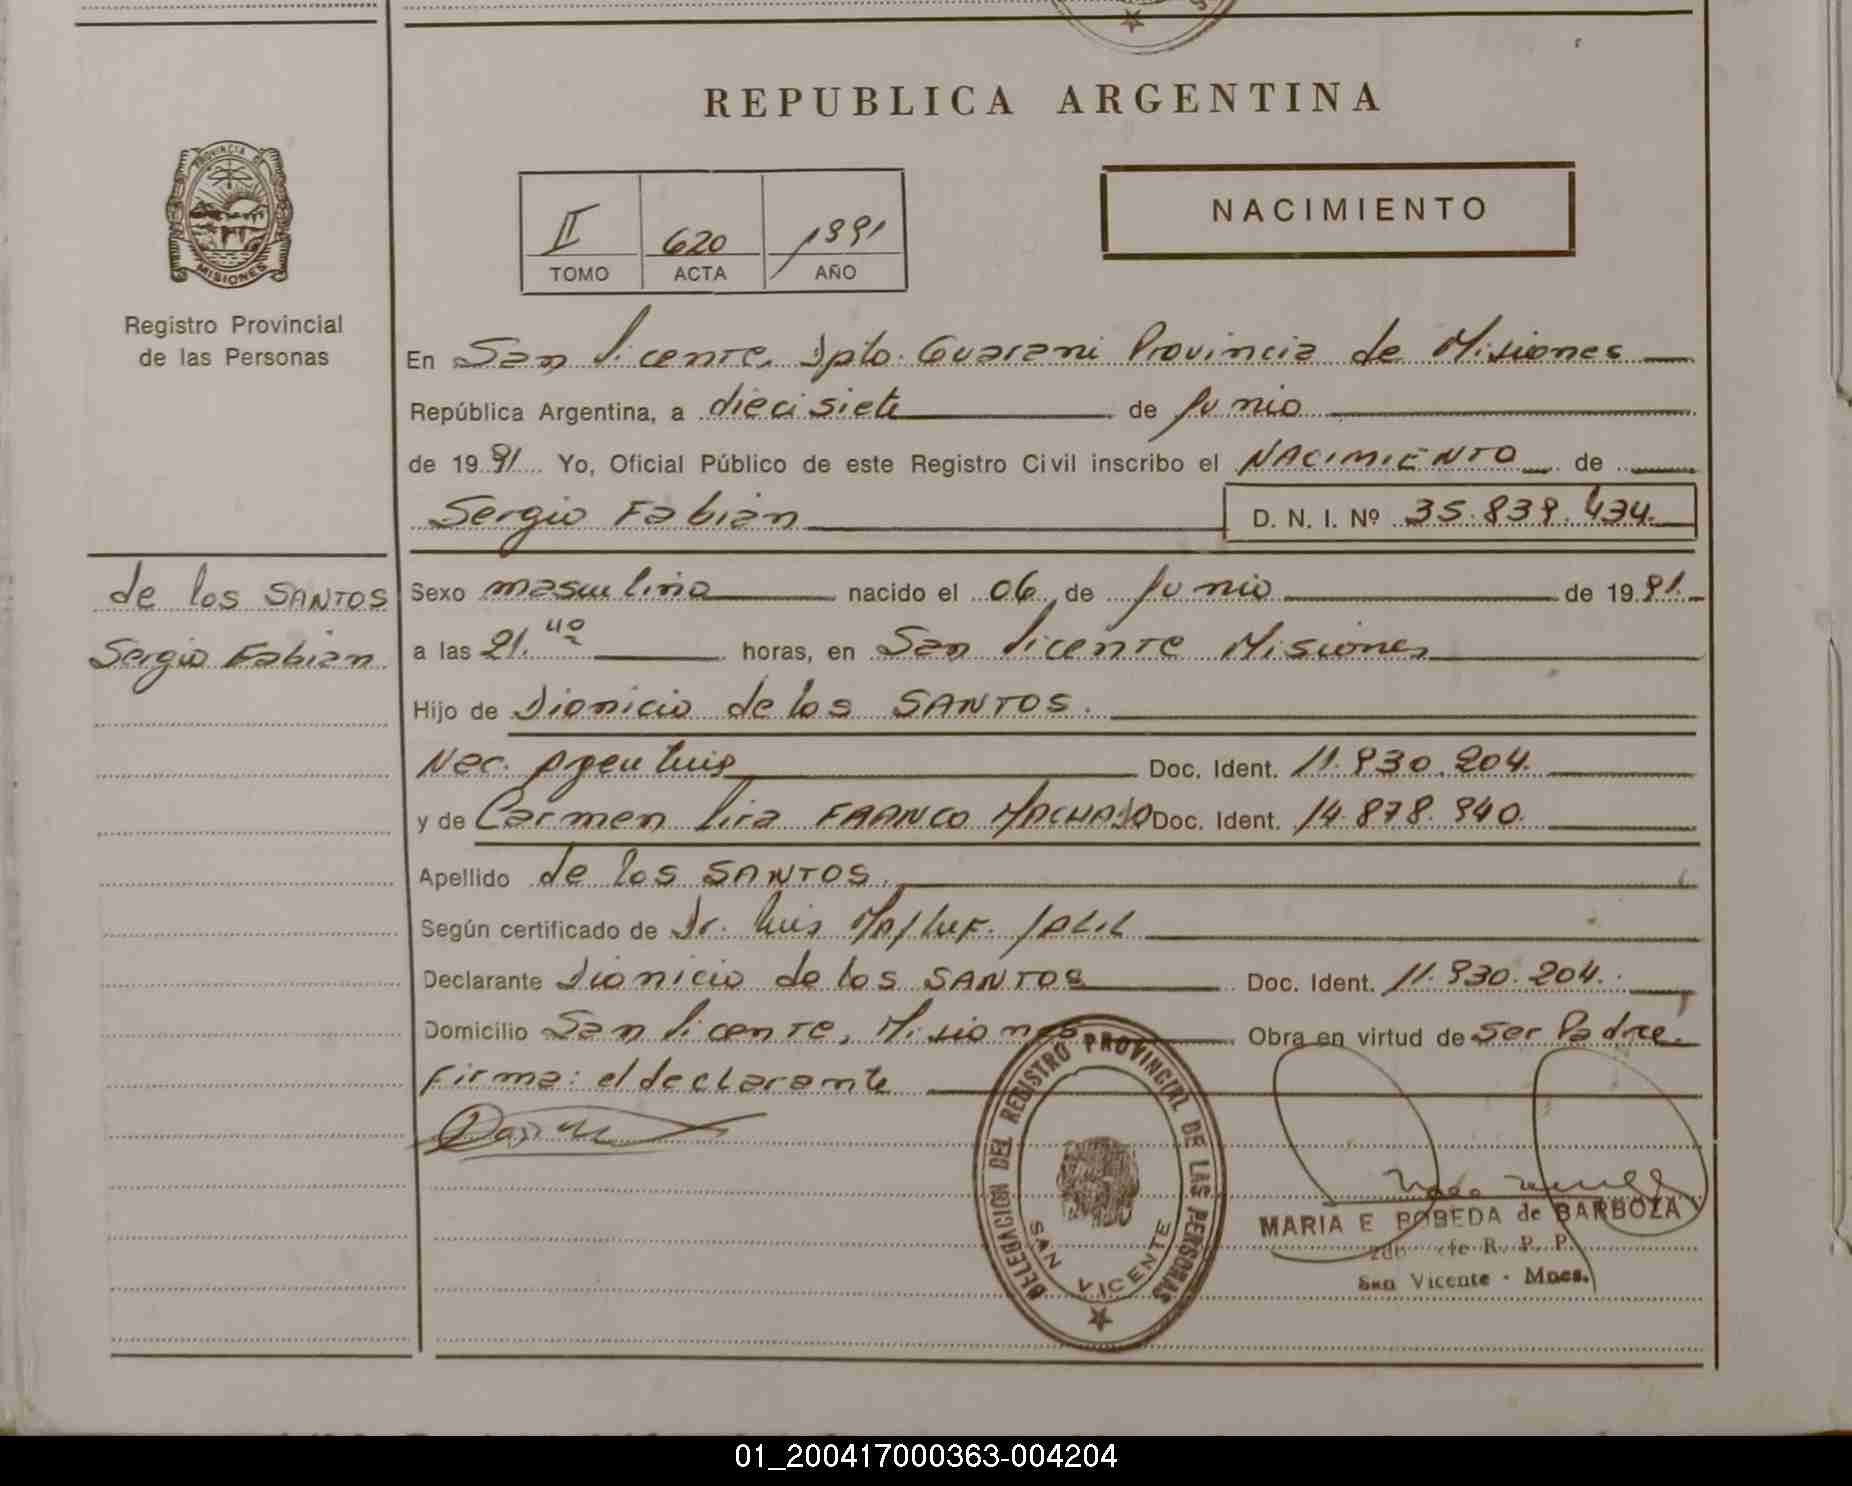 REPUBLICA ARGENTINA
PROVINCIA DE
MISIONES
Registro Provincial
de las Personas
II 620 1991
TOMO ACTA AÑO
NACIMIENTO
En San Vicente, Dpto. Guarani Provincia de Misiones
República Argentina, a diecisiete de Junio
de 1991 Yo, Oficial Público de este Registro Civil inscribo el NACIMIENTO de
Sergio Fabian D. N. I. Nº 35.839.434.
de los SANTOS
Sergio Fabian
Sexo masculino nacido el 06 de Junio de 1991.
a las 21.40 horas, en San Vicente Misiones
Hijo de Dionicio de los SANTOS.
Nac. Doc. Ident. 11.930.204.
y de Carmen Lira FRANCO MACHADO Doc. Ident. 14.878.940.
Apellido de los SANTOS.
Según certificado de Dr. Luis Jalil
Declarante Dionicio de los SANTOS Doc. Ident. 11.930.204.
Domicilio San Vicente, Misiones Obra en virtud de ser Padre.
Firma: el declarante
DELEGACION DEL REGISTRO PROVINCIAL DE LAS PERSONAS
SAN VICENTE
MARIA E POBEDA de BARBOZA
R. P. P.
San Vicente - Mnes.
01_200417000363-004204